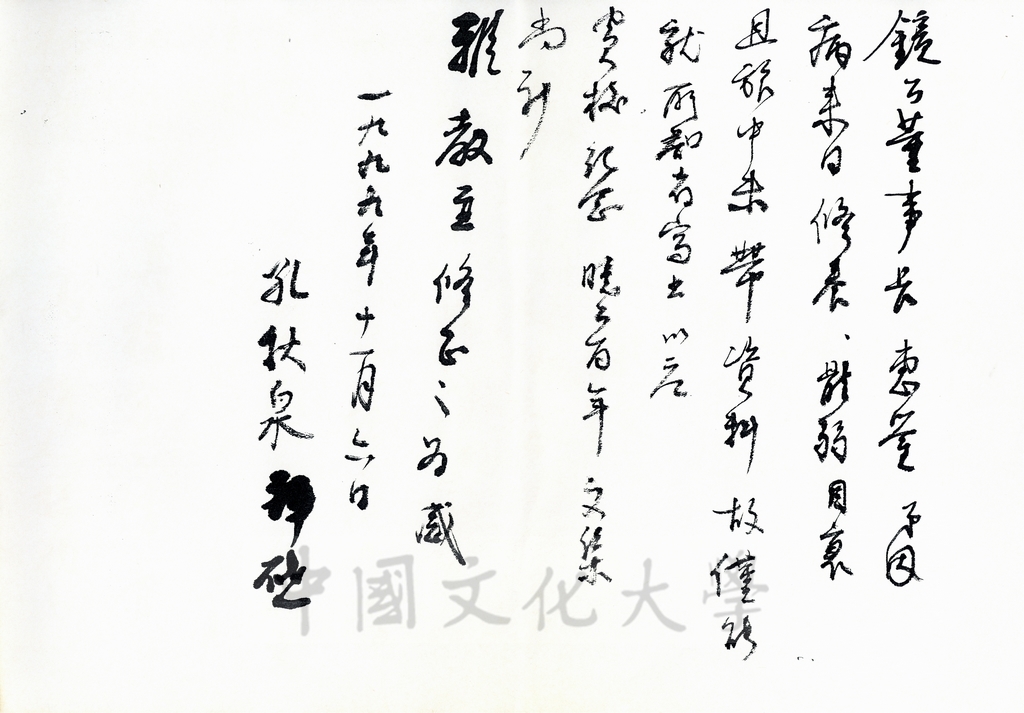 鏡公董事長惠鑒 予因
病來日修養、體弱目衰
且旅中未帶資料 故僅能
就所知者寫出以應
貴校紀念曉公百年文集
尚祈
雅教並修正之為感
一九九九年十一月六日
孔秋泉
中國文化大學